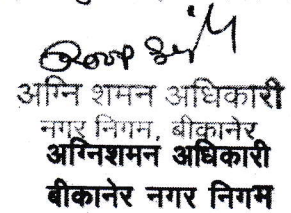 अग्नि शमन अधिकारी
नगर निगम, बीकानेर
अग्निशमन अधिकारी
बीकानेर नगर निगम